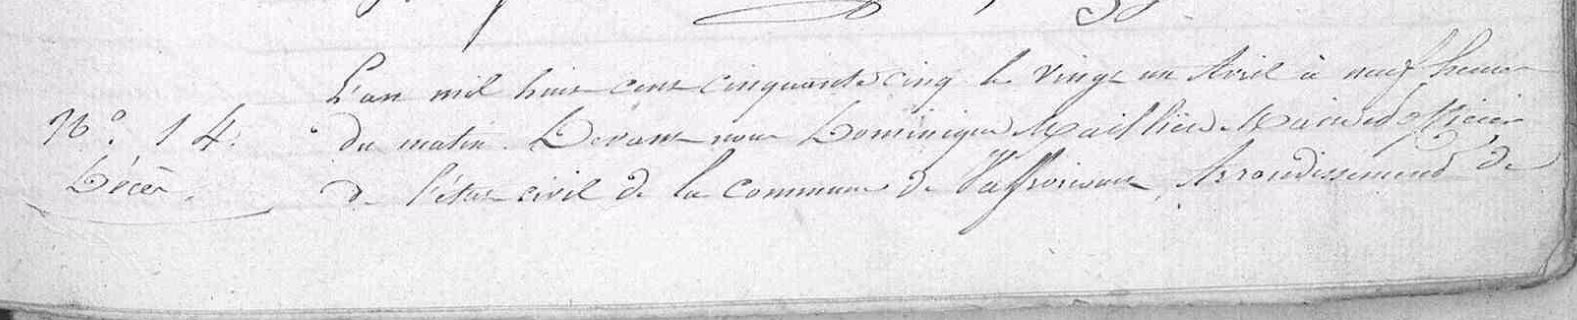 L'an mil huit cent cinquante cinq le vingt un Avril à neuf heures
N.° 14. du matin. Devant nous Dominique Maire et officier
Décès. de l'état civil de la commune de Arrondissement de